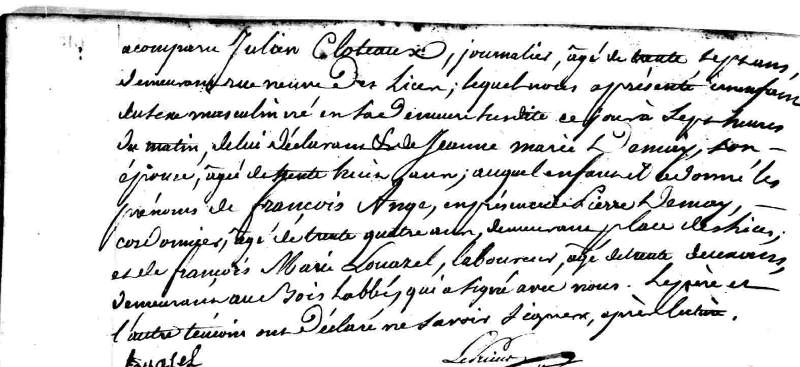 a comparu Julien Cloteaux, journalier, âgé de trente sept ans,
demeurant rue neuve des lices; lequel nous a présenté un enfant
du sexe masculin né en sa demeure susdite ce jour à sept heures
du matin, de lui déclarant & de Jeanne marie Demay, son
épouse, âgée de trente huit ans; auquel enfant il a donné les
prénoms de françois Ange, en présence de Pierre Demay,
cordonnier, âgé de trente quatre ans, demeurant place des lices;
et de françois Marie Louazel, laboureur, âgé de trente deux ans,
demeurant au Bois Labbé, qui a signé avec nous. Le père et
l'autre témoin ont déclaré ne savoir signer, après lecture.
Louazel